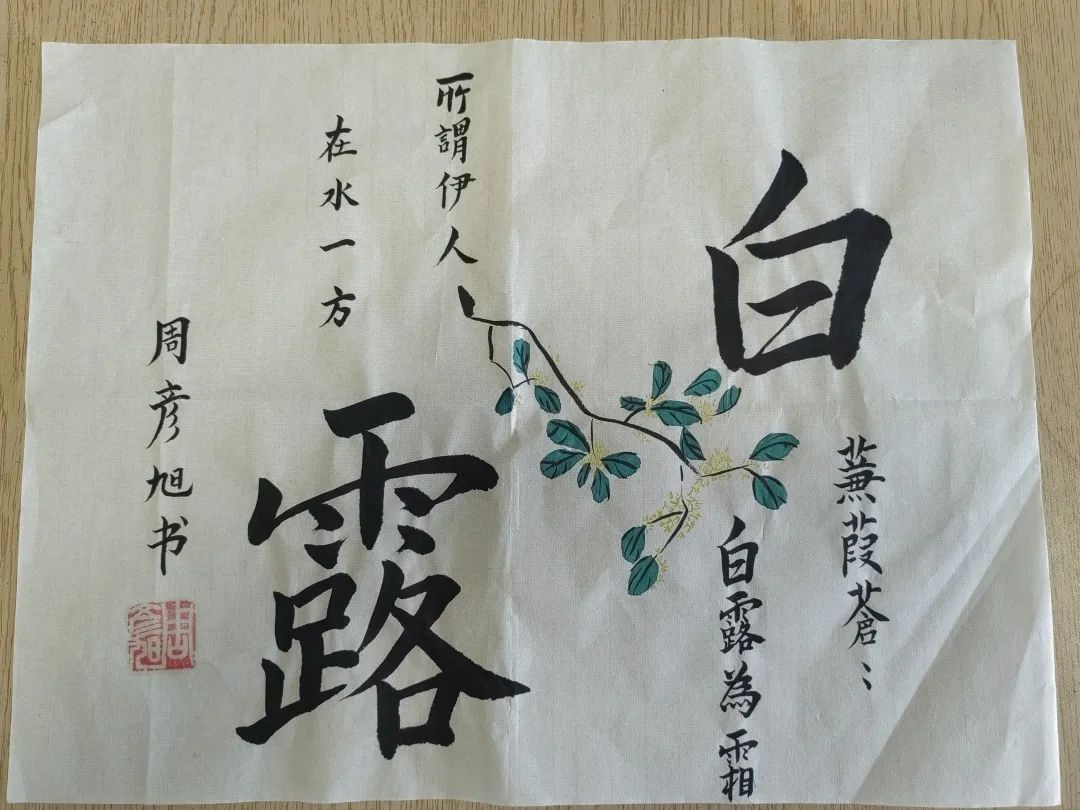 白
露
蒹葭蒼〻
白露為霜
所謂伊人
在水一方
周彦旭书
周彦旭